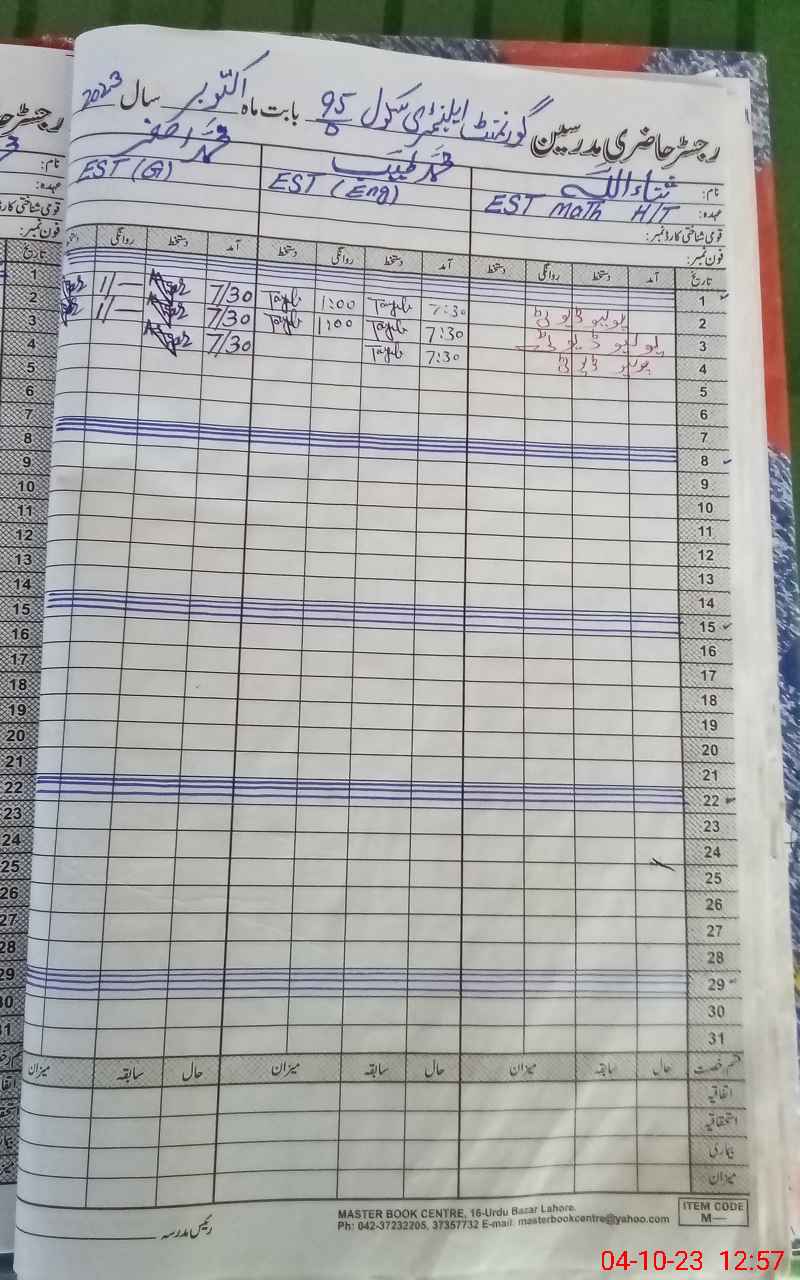 رجسٹر حاضری مدرسین گورنمنٹ ایلیمنٹری سکول 95/D بابت ماہ اکتوبر سال 2023
نام: ثناءاللہ محمد طیب محمد اصغر
عہدہ: EST Math H/T EST (Eng) EST (G)
قومی شناختی کارڈ نمبر:
فون نمبر:
تاریخ آمد دستخط روانگی دستخط آمد دستخط روانگی دستخط آمد دستخط روانگی
1
2 پولیو ڈیوٹی 7:30 Tayyib 1:00 Tayyib 7/30 1/—
3 پولیو ڈیوٹی 7:30 Tayyib 1:00 Tayyib 7/30 1/—
4 پولیو ڈیوٹی 7:30 Tayyib 7/30
5
6
7
8
9
10
11
12
13
14
15
16
17
18
19
20
21
22
23
24
25
26
27
28
29
30
31
قسم رخصت حال سابقہ میزان حال سابقہ میزان حال سابقہ میزان
اتفاقیہ
استحقاقیہ
بیماری
میزان
رئیس مدرسہ
MASTER BOOK CENTRE, 16-Urdu Bazar Lahore.
Ph: 042-37232205, 37357732 E-mail: masterbookcentre@yahoo.com
ITEM CODE
M—
04-10-23 12:57